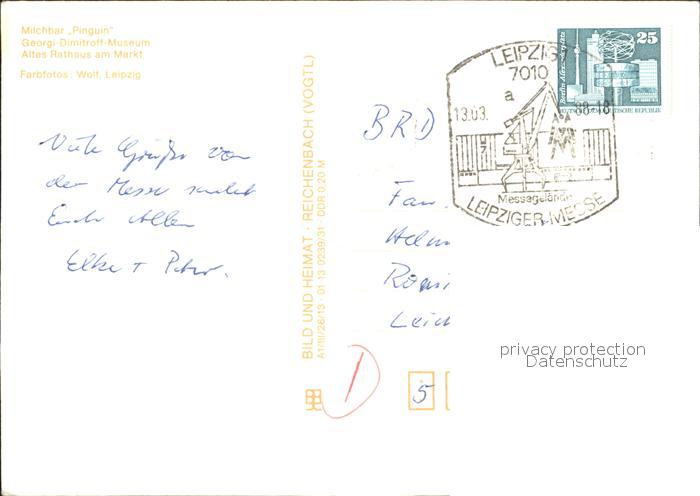 Milchbar „Pinguin"
Georgi-Dimitroff-Museum
Altes Rathaus am Markt
Farbfotos: Wolf, Leipzig
Viele Grüße von
der Messe sendet
Euch Allen
Elke + Peter.
BILD UND HEIMAT · REICHENBACH (VOGTL)
A1/III/26/13 · 01 13 0239/31 · DDR 0,20 M
LEIPZIG
7010
a
13.03.
88-18
Messegelände
LEIPZIGER MESSE
25
Berlin, Alexanderplatz
DEUTSCHE DEMOKRATISCHE REPUBLIK
BRD
Fam.
Helm
Leich
1
5
privacy protection
Datenschutz